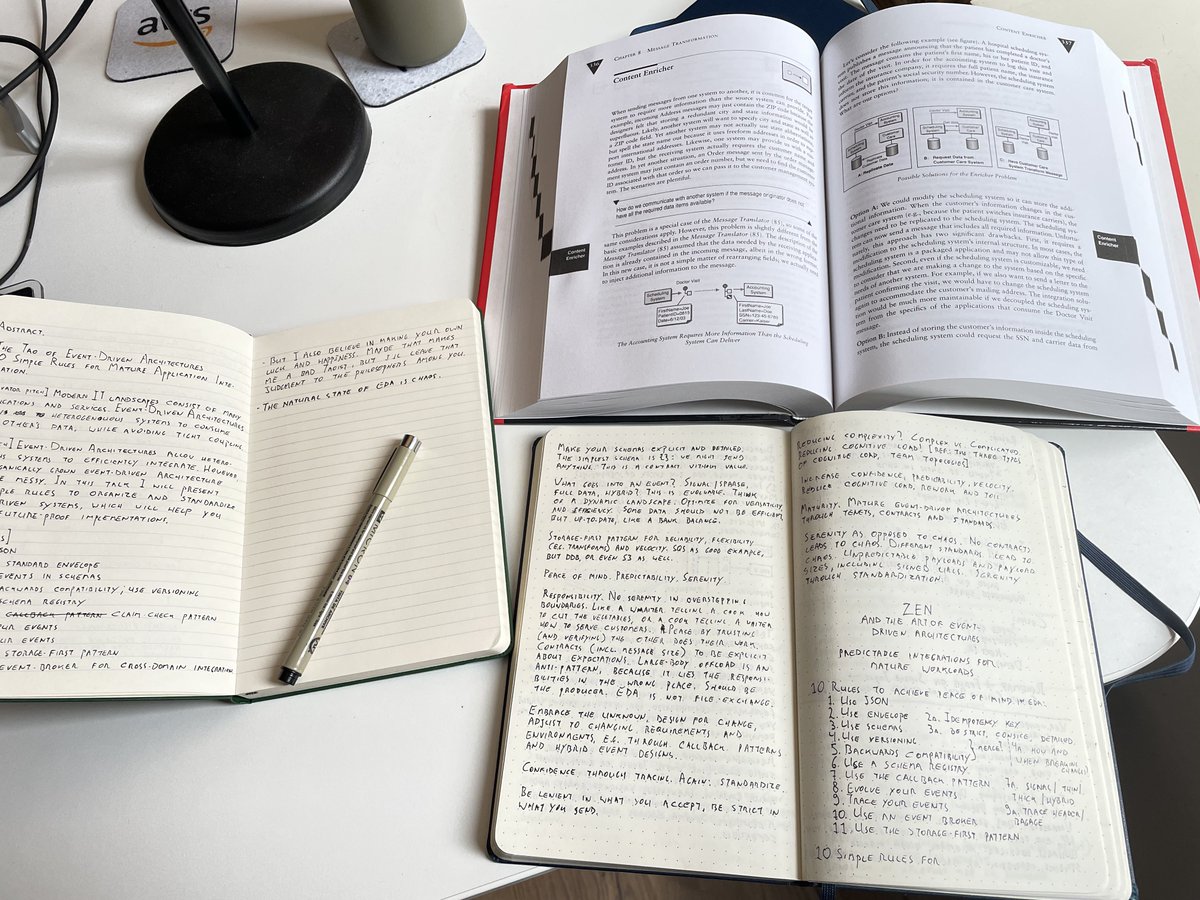 aws
ABSTRACT:
THE TAO OF EVENT-DRIVEN ARCHITECTURES
10 SIMPLE RULES FOR MATURE APPLICATION INTE-
MODERN IT LANDSCAPES CONSIST OF MANY
AND SERVICES. EVENT-DRIVEN ARCHITECTURES
TO HETEROGENEOUS SYSTEMS TO CONSUME
OTHER'S DATA, WHILE AVOIDING TIGHT COUPLING.
EVENT-DRIVEN ARCHITECTURES ALLOW HETERO-
SYSTEMS TO EFFICIENTLY INTEGRATE. HOWEVER
GROWN EVENT-DRIVEN ARCHITECTURE
MESSY. IN THIS TALK I WILL PRESENT
RULES TO ORGANIZE AND STANDARDIZE
SYSTEMS, WHICH WILL HELP YOU
FUTURE-PROOF IMPLEMENTATIONS.
JSON
STANDARD ENVELOPE
EVENTS IN SCHEMAS
BACKWARDS COMPATIBILITY, USE VERSIONING
SCHEMA REGISTRY
CALLBACK PATTERN CLAIM CHECK PATTERN
YOUR EVENTS
YOUR EVENTS
STORAGE-FIRST PATTERN
EVENT-BROKER FOR CROSS-DOMAIN INTEGRATION
- BUT I ALSO BELIEVE IN MAKING YOUR OWN
LUCK AND HAPPINESS. MAYBE THAT MAKES
ME A BAD TAOIST, BUT I'LL LEAVE THAT
JUDGMENT TO THE PHILOSOPHERS AMONG YOU.
- THE NATURAL STATE OF EDA IS CHAOS.
136
CHAPTER 8 · MESSAGE TRANSFORMATION
Content Enricher
When sending messages from one system to another, it is common for the target
system to require more information than the source system can provide. For
example, incoming Address messages may just contain the ZIP code because the
designers felt that storing a redundant city and state information would be
superfluous. Likely, another system will want to specify city and state as well as
a ZIP code field. Yet another system may not actually use state abbreviations,
but spell the state name out because it uses freeform addresses in order to sup-
port international addresses. Likewise, one system may provide us with a cus-
tomer ID, but the receiving system actually requires the customer name and
address. In yet another situation, an Order message sent by the order manage-
ment system may just contain an order number, but we need to find the customer
ID associated with that order so we can pass it to the customer management sys-
tem. The scenarios are plentiful.
How do we communicate with another system if the message originator does not
have all the required data items available?
This problem is a special case of the Message Translator (85), so some of the
same considerations apply. However, this problem is slightly different from the
basic examples described in the Message Translator (85). The description of the
Message Translator (85) assumed that the data needed by the receiving applica-
tion is already contained in the incoming message, albeit in the wrong format.
In this new case, it is not a simple matter of rearranging fields; we actually need
to inject additional information to the message.
Content
Enricher
Doctor Visit
Scheduling
System
Accounting
System
FirstName=Joe
PatientID=0815
Date=6/12/03
FirstName=Joe
LastName=Doe
SSN=123-45-6789
Carrier=Kaiser
The Accounting System Requires More Information Than the Scheduling
System Can Deliver
CONTENT ENRICHER
337
Let's consider the following example (see figure). A hospital scheduling sys-
tem publishes a message announcing that the patient has completed a doctor's
visit. The message contains the patient's first name, his or her patient ID, and
the date of the visit. In order for the accounting system to log this visit and
inform the insurance company, it requires the full patient name, the insurance
carrier, and the patient's social security number. However, the scheduling system
does not store this information; it is contained in the customer care system.
What are our options?
A: Replicate Data
B: Request Data from
Customer Care System
C: Have Customer Care
System Transform Message
Possible Solutions for the Enricher Problem
Option A: We could modify the scheduling system so it can store the addi-
tional information. When the customer's information changes in the cus-
tomer care system (e.g., because the patient switches insurance carriers), the
changes need to be replicated to the scheduling system. The scheduling sys-
tem can now send a message that includes all required information. Unfortu-
nately, this approach has two significant drawbacks. First, it requires a
modification to the scheduling system's internal structure. In most cases, the
scheduling system is a packaged application and may not allow this type of
modification. Second, even if the scheduling system is customizable, we need
to consider that we are making a change to the system based on the specific
needs of another system. For example, if we also want to send a letter to the
patient confirming the visit, we would have to change the scheduling system
again to accommodate the customer's mailing address. The integration solu-
tion would be much more maintainable if we decoupled the scheduling sys-
tem from the specifics of the applications that consume the Doctor Visit
message.
Option B: Instead of storing the customer's information inside the scheduling
system, the scheduling system could request the SSN and carrier data from
Content
Enricher
MAKE YOUR SCHEMAS EXPLICIT AND DETAILED.
THE SIMPLEST SCHEMA IS {}: WE MIGHT SEND
ANYTHING. THIS IS A CONTRACT WITHOUT VALUE.
WHAT GOES INTO AN EVENT? SIGNAL/SPARSE,
FULL DATA, HYBRID? THIS IS EVOLVABLE. THINK
OF A DYNAMIC LANDSCAPE. OPTIMIZE FOR VERSATILITY
AND EFFICIENCY. SOME DATA SHOULD NOT BE EFFICIENT
BUT UP-TO-DATE, LIKE A BANK BALANCE.
STORAGE-FIRST PATTERN FOR RELIABILITY, FLEXIBILITY
(EG. TRANSFORMS) AND VELOCITY. SQS AS GOOD EXAMPLE,
BUT DDB, OR EVEN S3 AS WELL.
PEACE OF MIND. PREDICTABILITY. SERENITY.
RESPONSIBILITY. NO SERENITY IN OVERSTEPPING
BOUNDARIES. LIKE A WAITER TELLING A COOK HOW
TO CUT THE VEGETABLES, OR A COOK TELLING A WAITER
HOW TO SERVE CUSTOMERS. PEACE BY TRUSTING
(AND VERIFYING) THE OTHER DOES THEIR WORK.
CONTRACTS (INCL. MESSAGE SIZE) TO BE EXPLICIT
ABOUT EXPECTATIONS. LARGE-BODY OFFLOAD IS AN
ANTI-PATTERN, BECAUSE IT LIES THE RESPONSI-
BILITIES IN THE WRONG PLACE. SHOULD BE
THE PRODUCER. EDA IS NOT FILE-EXCHANGE.
EMBRACE THE UNKNOWN, DESIGN FOR CHANGE,
ADJUST TO CHANGING REQUIREMENTS AND
ENVIRONMENTS, E.G. THROUGH CALLBACK PATTERNS
AND HYBRID EVENT DESIGNS.
CONFIDENCE THROUGH TRACING. AGAIN: STANDARDIZE.
BE LENIENT IN WHAT YOU ACCEPT, BE STRICT IN
WHAT YOU SEND.
REDUCING COMPLEXITY? COMPLEX VS. COMPLICATED.
REDUCING COGNITIVE LOAD! [REF: THE THREE TYPES
OF COGNITIVE LOAD, TEAM TOPOLOGIES]
INCREASE CONFIDENCE, PREDICABILITY, VELOCITY.
REDUCE COGNITIVE LOAD, REWORK AND TOIL.
MATURITY. MATURE EVENT-DRIVEN ARCHITECTURES
THROUGH TENETS, CONTRACTS AND STANDARDS.
SERENITY AS OPPOSED TO CHAOS. NO CONTRACTS
LEADS TO CHAOS. DIFFERENT STANDARDS LEAD TO
CHAOS. UNPREDICTABLE PAYLOADS AND PAYLOAD
SIZES, INCLUDING SIGNED URLS. SERENITY
THROUGH STANDARDIZATION.
ZEN
AND THE ART OF EVENT-
DRIVEN ARCHITECTURES
PREDICTABLE INTEGRATIONS FOR
MATURE WORKLOADS
10 RULES TO ACHIEVE PEACE OF MIND IN EDA:
1. USE JSON
2. USE ENVELOPE 2a. IDEMPOTENCY KEY
3. USE SCHEMAS 3a. BE STRICT, CONSICE, DETAILED.
4. USE VERSIONING
5. BACKWARDS COMPATIBILITY } MERGE? 4a. HOW AND WHEN BREAKING CHANGES
6. USE A SCHEMA REGISTRY
7. USE THE CALLBACK PATTERN 7a. SIGNAL/THIN/
8. EVOLVE YOUR EVENTS THICK/HYBRID
9. TRACE YOUR EVENTS 9a. TRACE HEADER/
10. USE AN EVENT BROKER BAGAGE
11. USE THE STORAGE-FIRST PATTERN
10 SIMPLE RULES FOR